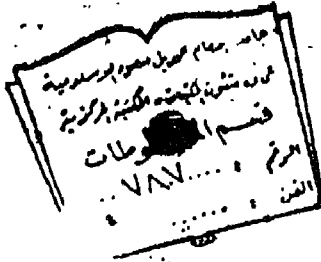 جامعة الإمام محمد بن سعود الإسلامية
عمادة شئون المكتبات - المكتبة المركزية
قسم المخطوطات
الرقم : .... ٧٨٧ ..
الفن : ......